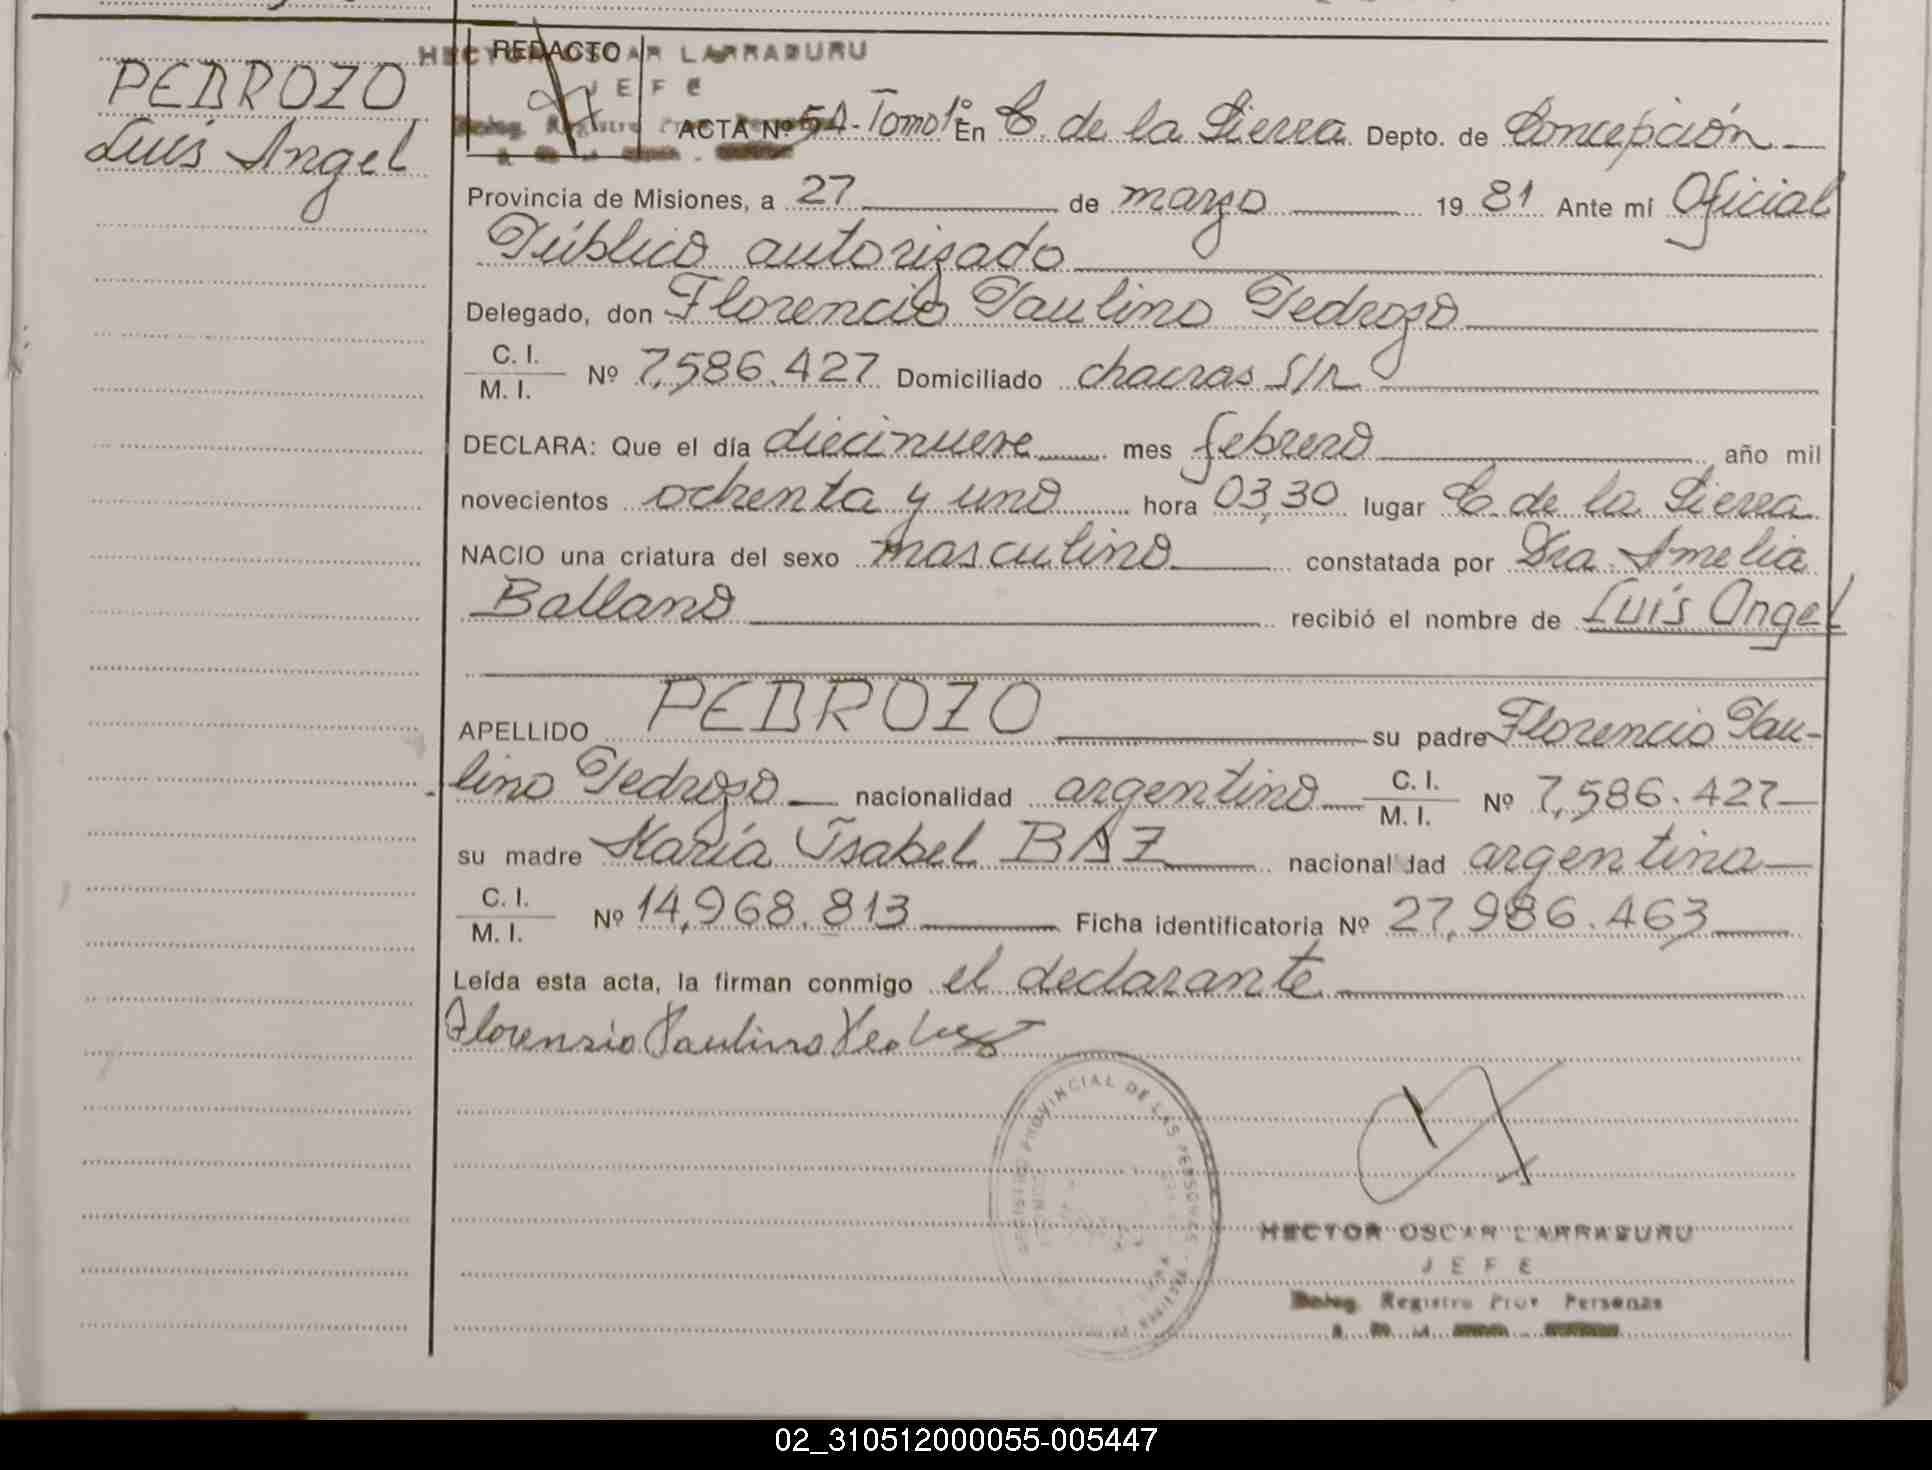 PEDROZO
Luis Angel
REDACTO
HECTOR OSCAR LARRABURU
JEFE
ACTA Nº 54-Tomo1º En C. de la Sierra Depto. de Concepción
Provincia de Misiones, a 27 de marzo 19 81 Ante mi Oficial
Público autorizado
Delegado, don Florencio Paulino Pedrozo
C. I.
M. I. Nº 7,586.427 Domiciliado chacras S/n
DECLARA: Que el día diecinueve mes febrero año mil
novecientos ochenta y uno hora 03,30 lugar C. de la Sierra
NACIO una criatura del sexo masculino constatada por Dra. Amelia
Balland recibió el nombre de Luis Angel
APELLIDO PEDROZO su padre Florencio Pau-
lino Pedrozo nacionalidad argentino C. I.
M. I. Nº 7,586.427
su madre María Isabel BAZ nacionalidad argentina
C. I.
M. I. Nº 14,968.813 Ficha identificatoria Nº 27,986.463
Leída esta acta, la firman conmigo el declarante
Florensio Paulino
REGISTRO PROVINCIAL DE LAS PERSONAS
HECTOR OSCAR LARRABURU
JEFE
Deleg. Registro Prov Personas
02_310512000055-005447